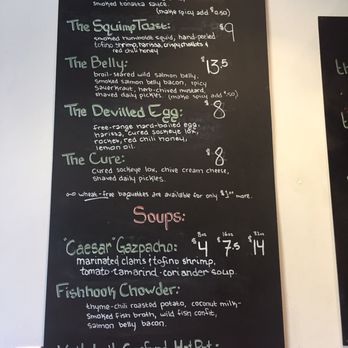 smoked tomatta sauce.
(make spicy add $.50)
The Squimp Toast: $9
smoked humboldt squid, hand-peeled
tofino shrimp, harissa, crispy shallots &
red chili honey
The Belly: $13.5
broil-seared wild salmon belly,
smoked salmon belly bacon, spicy
sauerkraut, herb-chived mustard,
shaved daily pickles. (make spicy add $.50)
The Devilled Egg: $8
free-range hard-boiled egg,
harissa, cured sockeye lox,
rocket, red chili honey,
lemon oil.
The Cure: $8
cured sockeye lox, chive cream cheese,
shaved daily pickles.
wheat-free baguettes are available for only more.
Soups:
8oz 16oz 32oz
"Caesar" Gazpacho: $4 $7.5 $14
marinated clams & tofino shrimp,
tomato-tamarind-coriander soup.
Fishhook Chowder:
thyme-chili roasted potato, coconut milk-
smoked fish broth, wild fish confit,
salmon belly bacon.
Seafood Hot Pot: